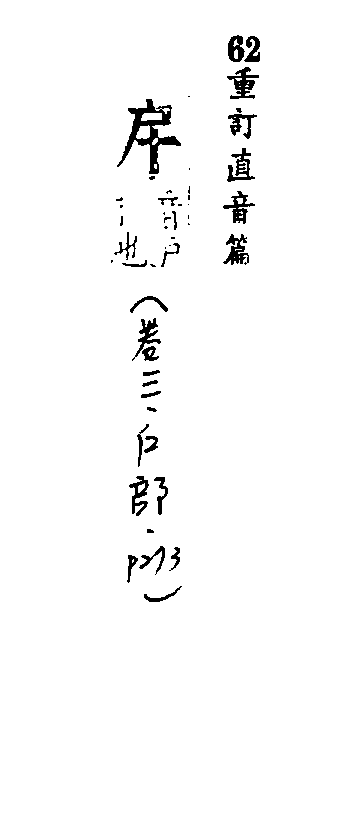 62重訂直音篇
音戶
也
(卷三、戶部、p273)